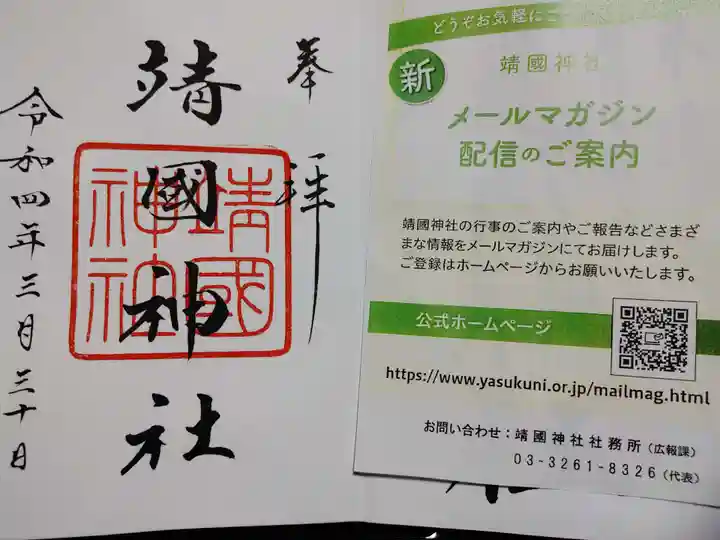 奉拝
靖國神社
靖國
神社
令和四年三月三十日
どうぞお気軽にご
新
靖國神社
メールマガジン
配信のご案内
靖國神社の行事のご案内やご報告などさまざ
まな情報をメールマガジンにてお届けします。
ご登録はホームページからお願いいたします。
公式ホームページ
https://www.yasukuni.or.jp/mailmag.html
お問い合わせ：靖國神社社務所（広報課）
03-3261-8326（代表）